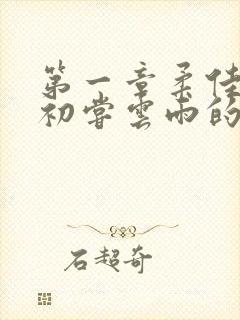 第一章柔佳
初尝云雨的
石超奇